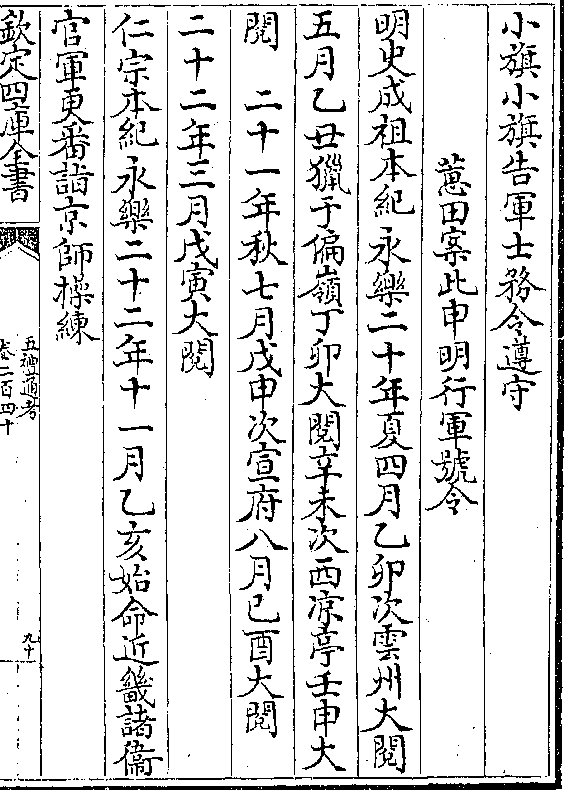 小旗小旗告軍士務令遵守
蕙田案此申明行軍號令
明史成祖本紀永樂二十年夏四月乙卯次雲州大閱
五月乙丑獵于偏嶺丁卯大閱辛未次西凉亭壬申大
閱　二十一年秋七月戊申次宣府八月已酉大閱
二十二年三月戊寅大閱
仁宗本紀永樂二十二年十一月乙亥始命近畿諸衛
官軍更番詣京師操練
欽定四庫全書
五禮通考
卷二百四十
九十